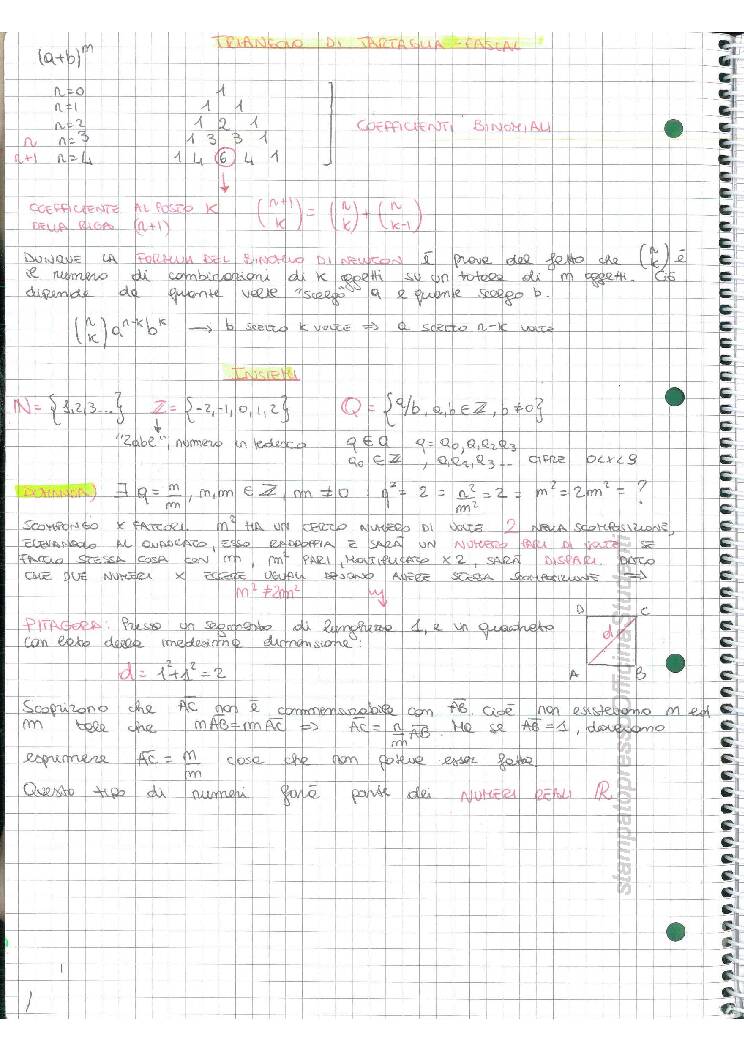 TRIANGOLO DI TARTAGLIA - PASCAL
(a+b)^m
n=0 1
n=1 1 1
n=2 1 2 1
n n=3 1 3 3 1
n+1 n=4 1 4 6 4 1
COEFFICIENTI BINOMIALI
COEFFICIENTE AL POSTO K (n+1 k) = (n k) + (n k-1)
DELLA RIGA (n+1)
DUNQUE LA FORMULA DEL BINOMIO DI NEWTON è prova del fatto che (n k) è
il numero di combinazioni di k oggetti su un totale di m oggetti. Ciò
dipende da quante volte "scelgo" a e quante scelgo b.
(n k) a^n-k b^k → b scelto k volte ⇒ a scelto n-k volte
INSIEMI
N = {1,2,3...} Z = {-2,-1,0,1,2} Q = {a/b, a,b ∈ Z, b≠0}
"Zahl", numero in tedesco q ∈ Q q = a0, a1 a2 a3
a0 ∈ Z, a1 a2, a3 ... CIFRE 0<x<9
DOMANDA) ∃ q = m/m, m,m ∈ Z, m ≠ 0 : q² = 2 = n²/m² = 2 = m² = 2m² = ?
SCOMPONGO X FATTORI. m² HA UN CERTO NUMERO DI VOLTE 2 NELLA SCOMPOSIZIONE,
ELEVANDOLO AL QUADRATO, ESSO RADDOPPIA E SARÀ UN NUMERO PARI DI VOLTE SE
FACCIO STESSA COSA CON m, m² PARI, MOLTIPLICATO X 2, SARÀ DISPARI. DATO
CHE DUE NUMERI X ESSERE UGUALI DEVONO AVERE STESSA SCOMPOSIZIONE ⇒
m² ≠ 2m²
PITAGORA: Preso un segmento di lunghezza 1, e un quadrato
con lato della medesima dimensione:
D C
d
A B
d = 1² + 1² = 2
Scoprirono che AC non è commensurabile con AB. Cioè non esistevano m ed
m tale che mAB = mAC ⇒ AC = n/m AB. Ma se AB = 1, dovevamo
esprimere AC = m/m cosa che non poteva esser fatta
Questo tipo di numeri farà parte dei NUMERI REALI R
stampatopressoofficinaStudenti
1